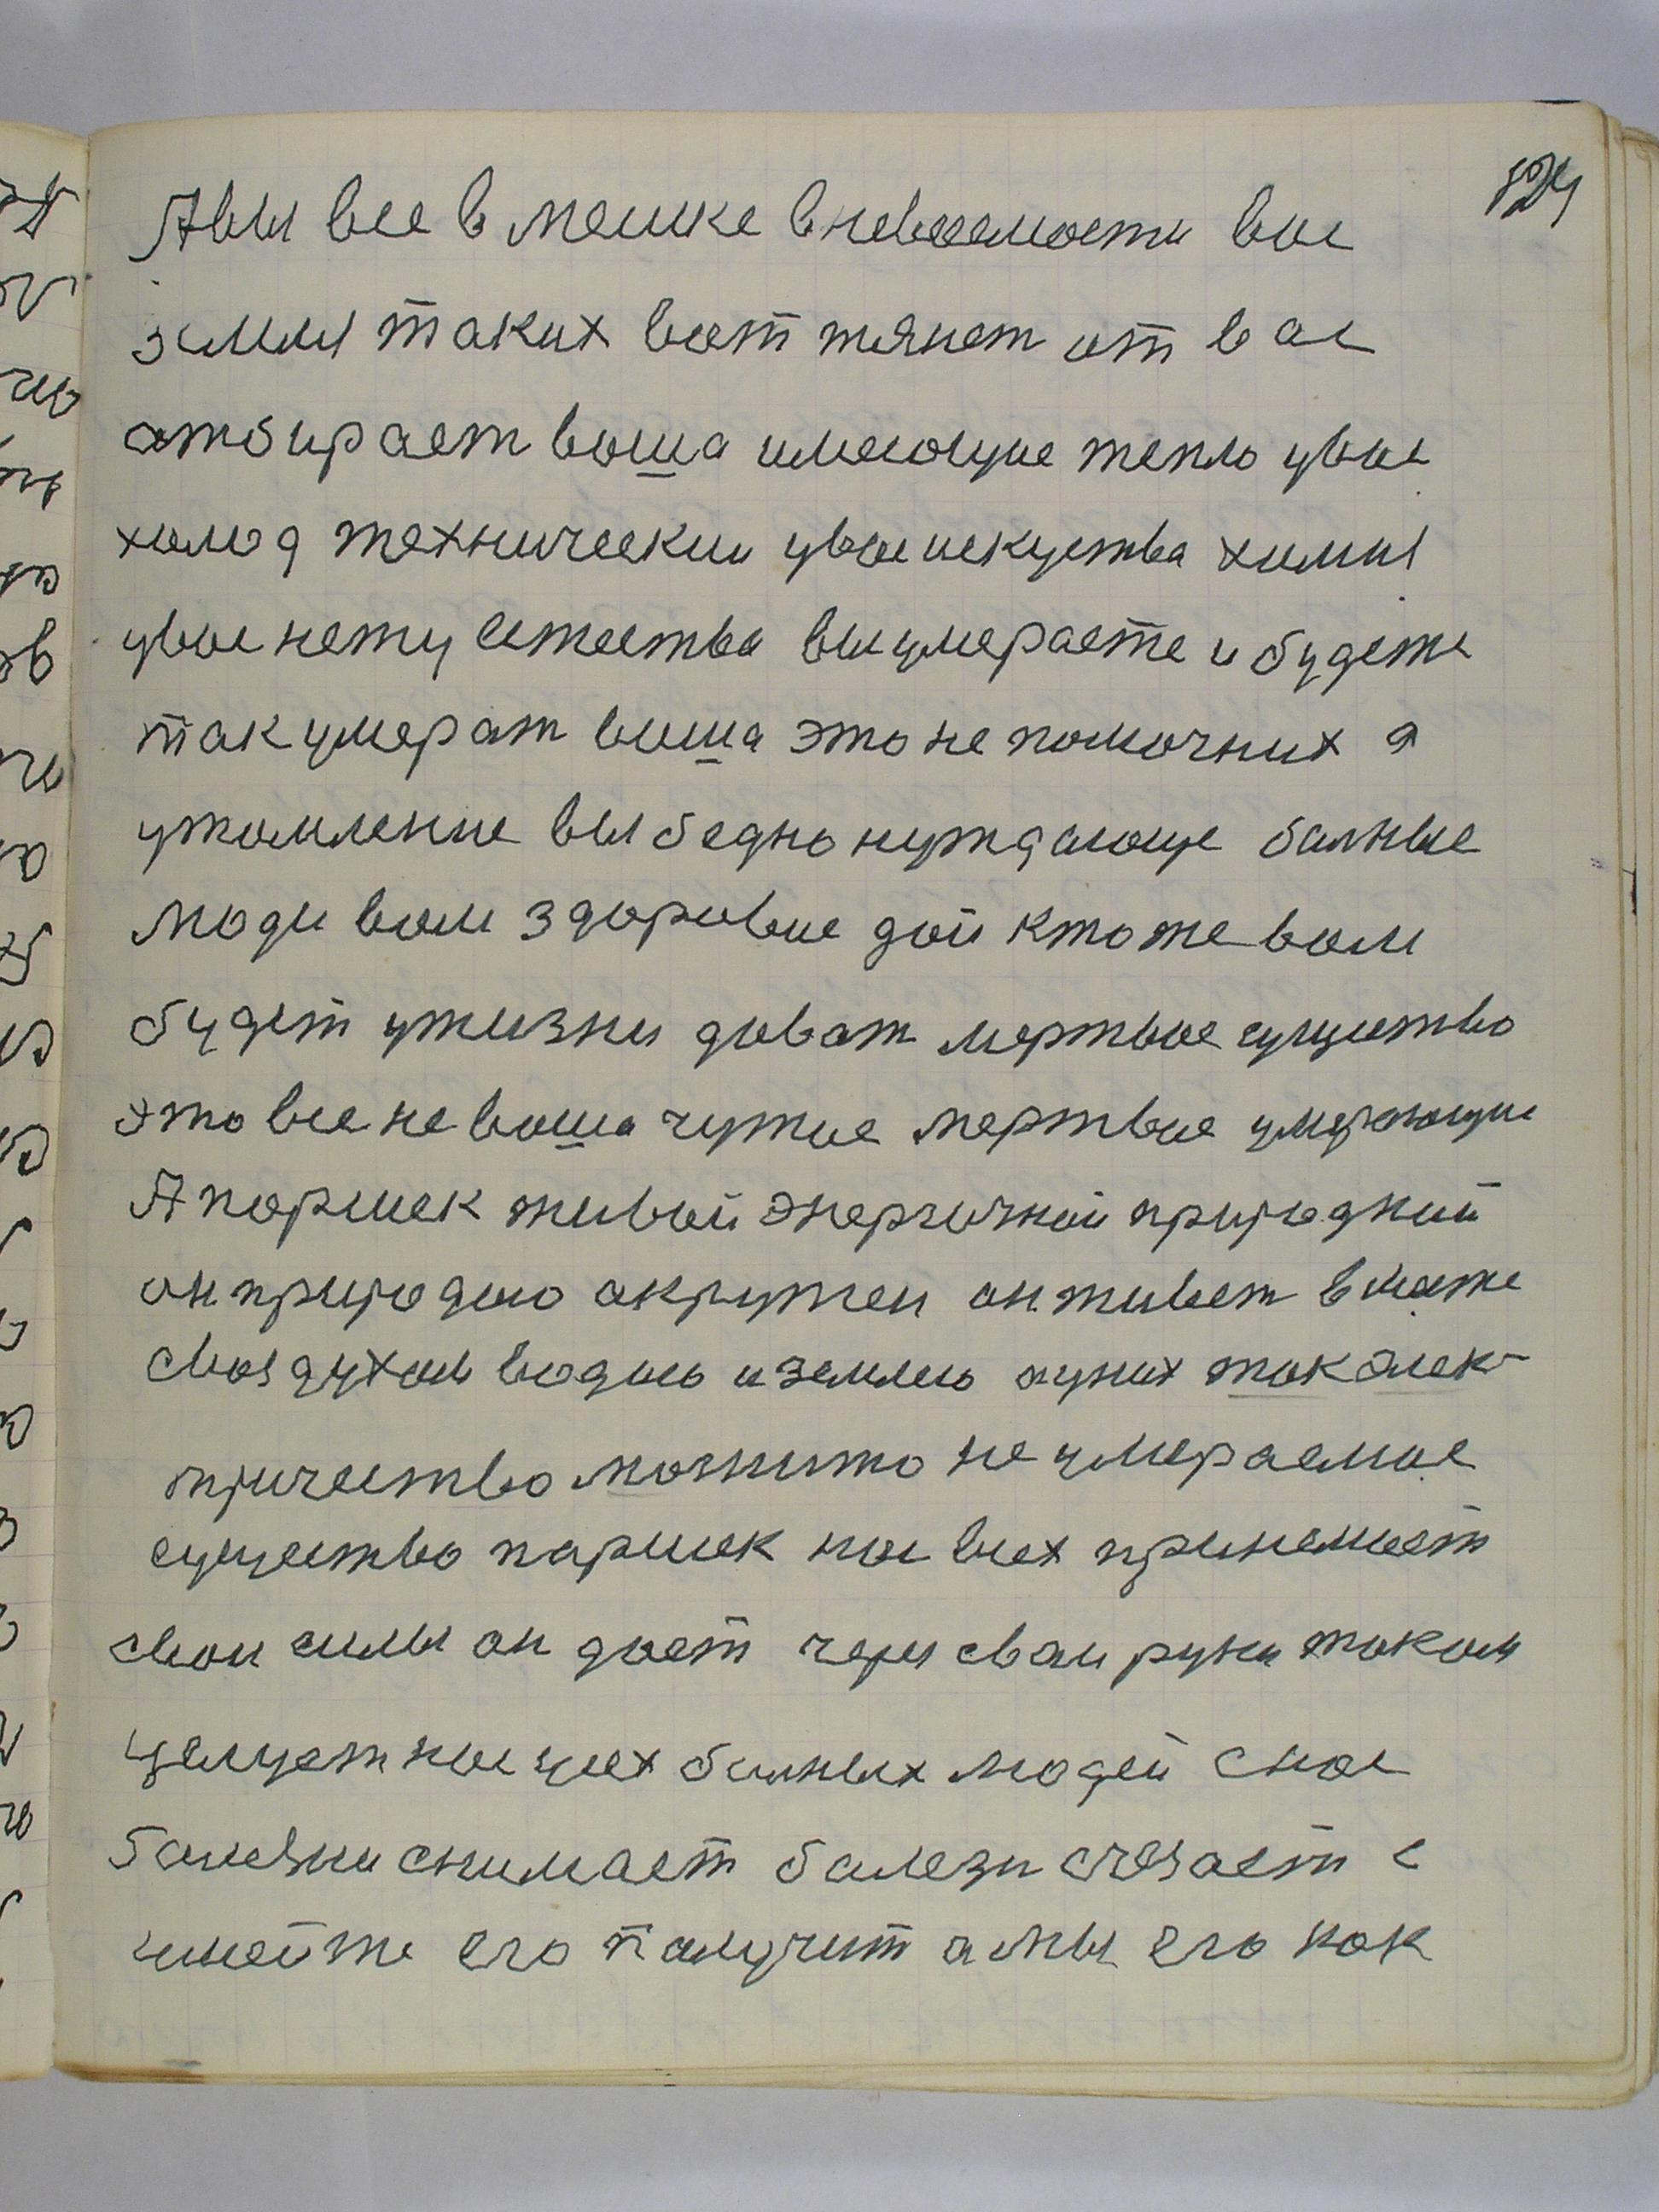 124
Авы все в мешке в невесомости вас
земля таких вот тянет от вас
атбирает ваша имеющие тепло увас
холод технически увас искуства химия
увас нету естества вы умераете и будете
так умерат ваша это не помочник а
утомление вы бедно нуждающе балные
люди вам здоровие дай кто же вам
будет ужизни дават мертвое существо
это все не ваша чужие мертвые умерающие
А паршек живой энергичной природний
он природою акружен он живет вместе
свозд​ухом водою и землею ауних ток элек-
тричество магнито не умераемое
существо паршек нас всех принемает
свои силы он дает через сваи руки током
целует нас усех балных людей снас
балезни снимает балезн счезает с
имейте его палучит а мы его как